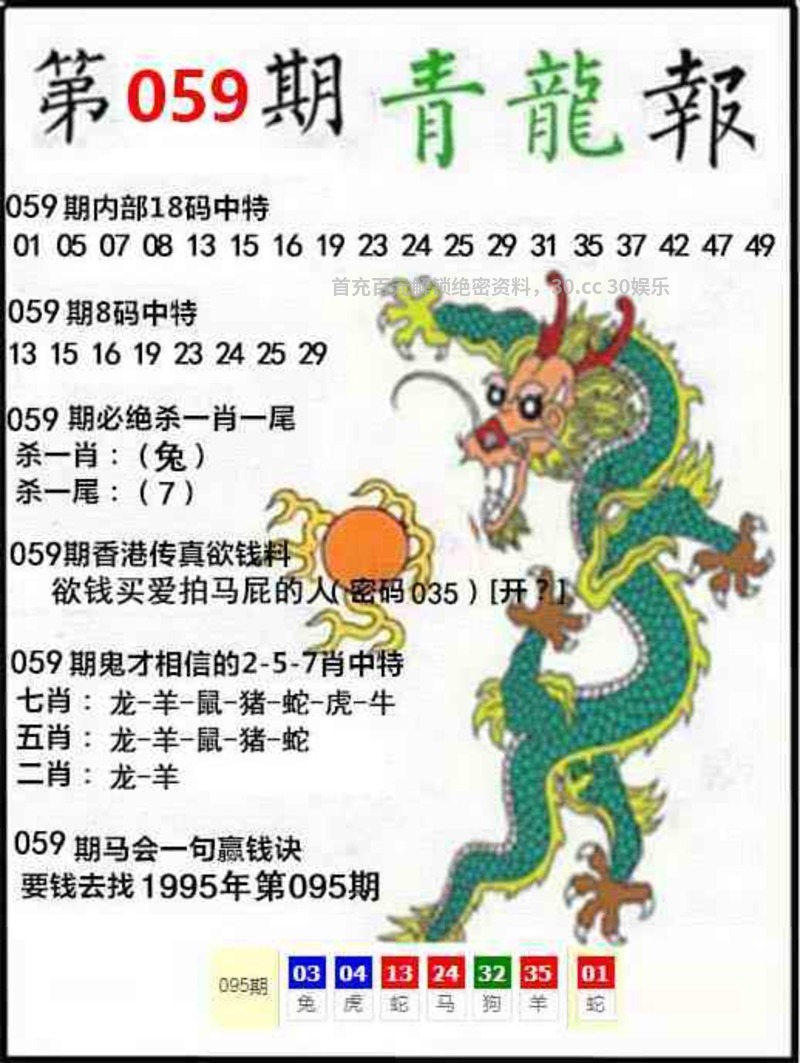 第059期青龍報
059期内部18码中特
01 05 07 08 13 15 16 19 23 24 25 29 31 35 37 42 47 49
059期8码中特
13 15 16 19 23 24 25 29
059期必绝杀一肖一尾
杀一肖：（兔）
杀一尾：（7）
059期香港传真欲钱料
欲钱买爱拍马屁的人(密码035)[开？]
059期鬼才相信的2-5-7肖中特
七肖：龙-羊-鼠-猪-蛇-虎-牛
五肖：龙-羊-鼠-猪-蛇
二肖：龙-羊
059期马会一句赢钱诀
要钱去找1995年第095期
095期 03 04 13 24 32 35 01
兔 虎 蛇 马 狗 羊 蛇
首充百 解锁绝密资料，30.cc 30娱乐